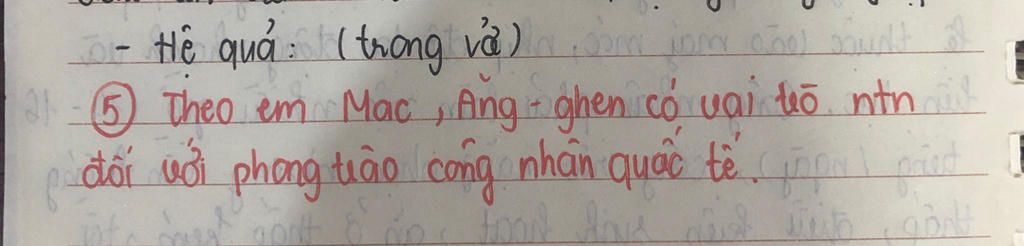 - Hệ quả: (trong vở)
⑤ Theo em Mac, Ăng-ghen có vai trò ntn
đối với phong trào công nhân quốc tế.